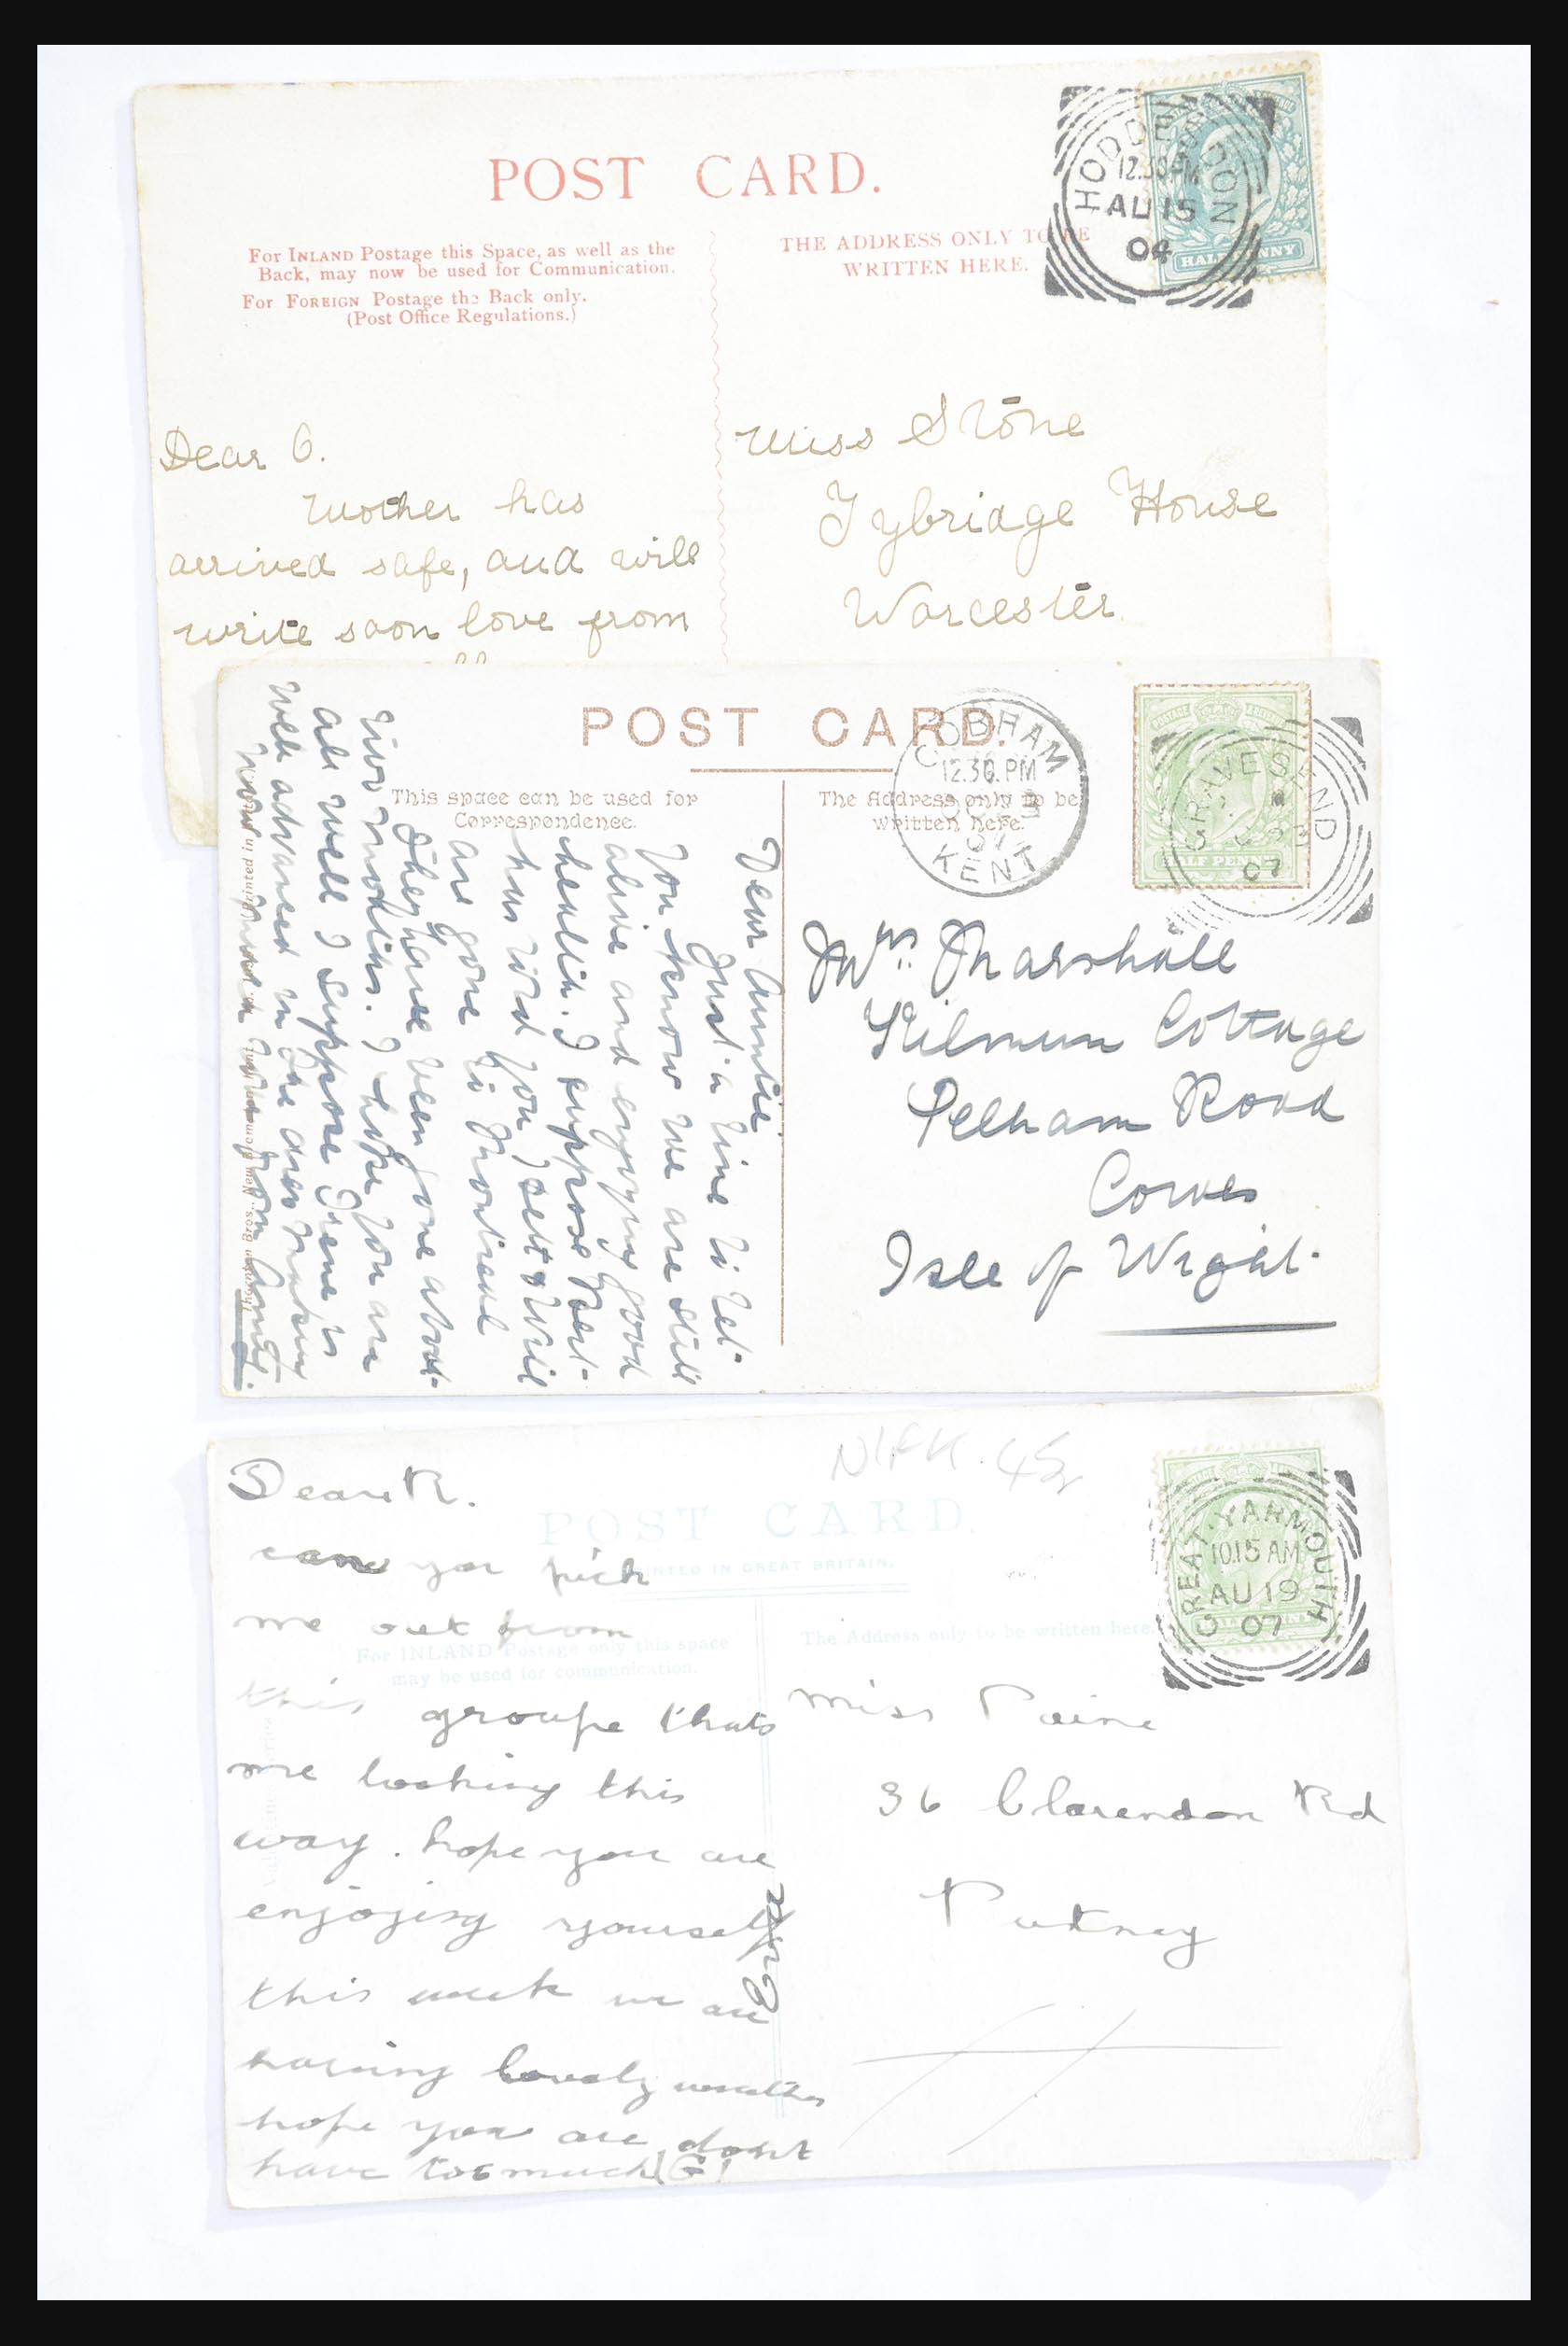 POST CARD.
For INLAND Postage this Space, as well as the
Back, may now be used for Communication.
For FOREIGN Postage the Back only.
(Post Office Regulations.)
THE ADDRESS ONLY TO BE
WRITTEN HERE.
HODDESDON
12.30PM
AU 15
04
HALFPENNY
Dear O.
Mother has
arrived safe, and will
write soon love from
Miss Stone
Tybridge House
Worcester
POST CARD.
This space can be used for
Correspondence.
The Address only to be
written here.
COBHAM
12.30.PM
07
KENT
POSTAGE
HALF PENNY
GRAVESEND
07
Dear Auntie.
Just a line to let
you know we are still
alive and enjoying good
health. I suppose Bert
has told you
are gone to Montreal
They have been gone about
two months. I hope you are
all well I suppose Irene is
well advanced in the
Thompson Bros.
Printed in
Mrs Marshall
Kilmun Cottage
Pelham Road
Cowes
Isle of Wight.
POST CARD.
PRINTED IN GREAT BRITAIN.
For INLAND Postage only this space
may be used for communication.
The Address only to be written here.
GREAT YARMOUTH
10.15 AM
AU 19
07
Dear R.
can you pick
me out from
this groupe thats
me looking this
way. hope you are
enjoying yourself
this week we are
having lovely weather
hope you are dont
have too much (G)
Miss Paine
36 Clarendon Rd
Putney